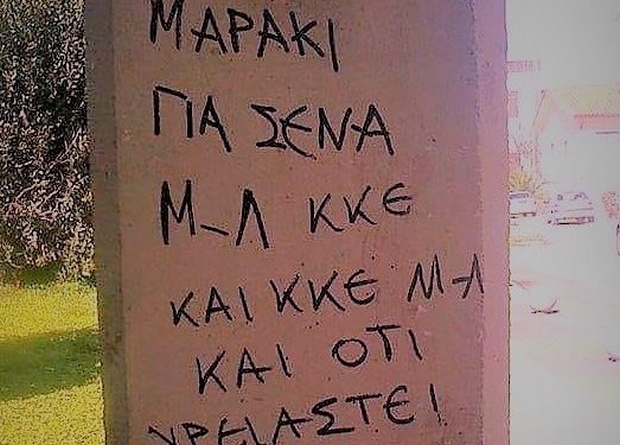 ΜΑΡΑΚΙ
ΓΙΑ ΣΕΝΑ
Μ-Λ ΚΚΕ
ΚΑΙ ΚΚΕ Μ-Λ
ΚΑΙ ΟΤΙ
ΧΡΕΙΑΣΤΕΙ